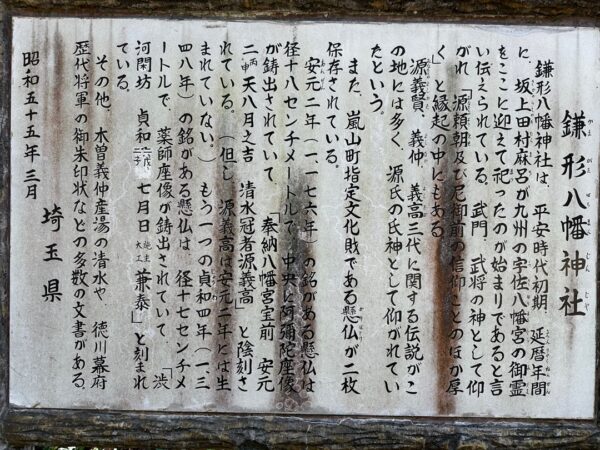 鎌形八幡神社
鎌形八幡神社は、平安時代初期　延暦年間
に、坂上田村麻呂が九州の宇佐八幡宮の御霊
をここに迎えて祀ったのが始まりであると言
い伝えられている。武門　武将の神として仰
がれ「源頼朝及び尼御前の信仰ことのほか厚
く」と縁起の中にもある。
源義賢、義仲、義高三代に関する伝説がこ
の地には多く、源氏の氏神として仰がれてい
たという。
また、嵐山町指定文化財である懸仏が二枚
保存されている。
安元二年（一、一七六年）の銘がある懸仏は
径十八センチメートルで、中央に阿彌陀座像
が鋳出されていて　奉納八幡宮宝前　安元
二丙申天八月之吉　清水冠者源義高」と陰刻さ
れている。（但し　源義高は安元二年には生
まれていない。）もう一つの貞和四年（一、三
四八年）の銘がある懸仏は、径十七センチメ
ートルで、薬師座像が鋳出されていて、「渋
河閑坊　貞和　七月日　施主大工　兼泰」と刻まれ
ている。
その他、木曽義仲産湯の清水や、徳川幕府
歴代将軍の御朱印状などの多数の文書がある。
昭和五十五年三月
埼玉県